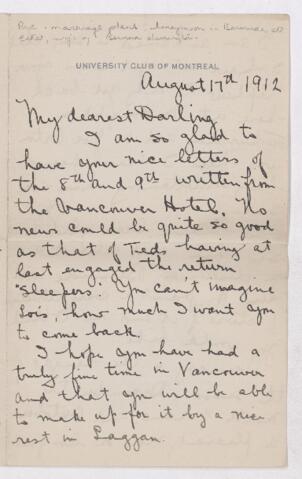 marriage plans - honeymoon in
UNIVERSITY CLUB OF MONTREAL
August 17th 1912
My dearest Darling
I am so glad to
have your nice letters of
the 8th and 9th written from
the Vancouver Hotel. No
news could be quite so good
as that of Teds having at
last engaged the return
"sleepers". You can't imagine
Lois, how much I want you
to come back.
I hope you have had a
truly fine time in Vancouver
and that you will be able
to make up for it by a nice
rest in Laggan.